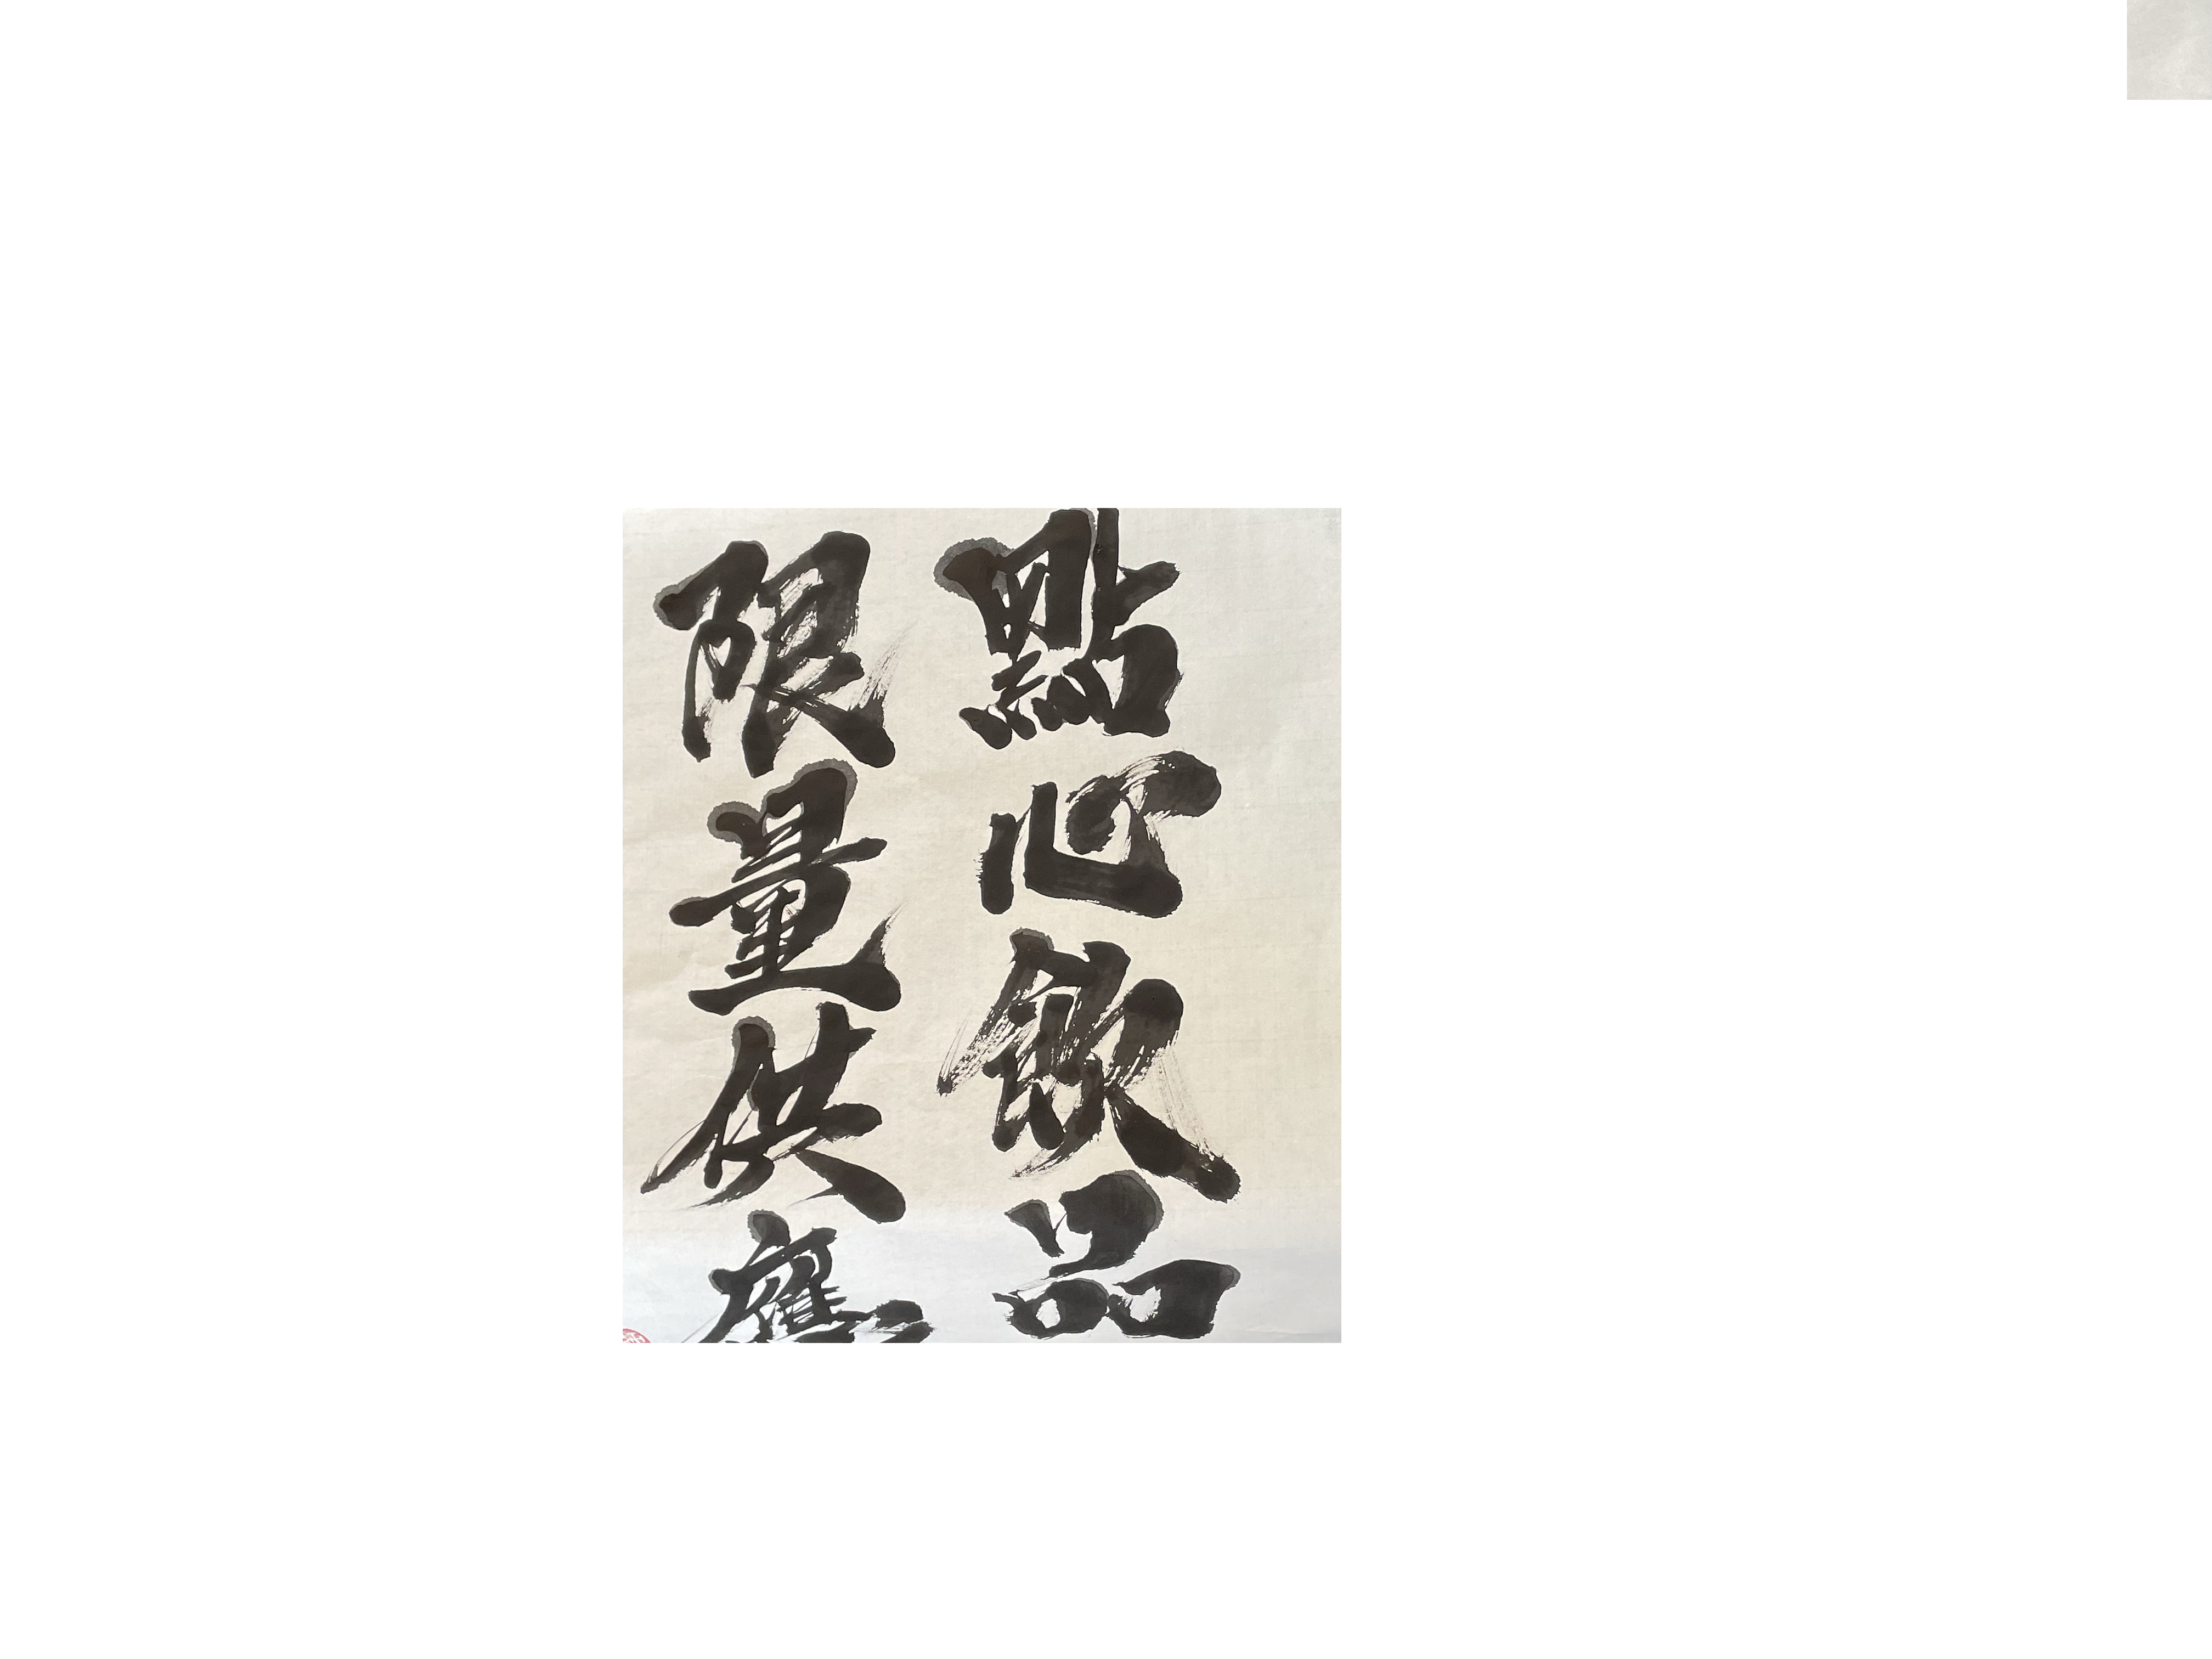 點心飲品
限量供應